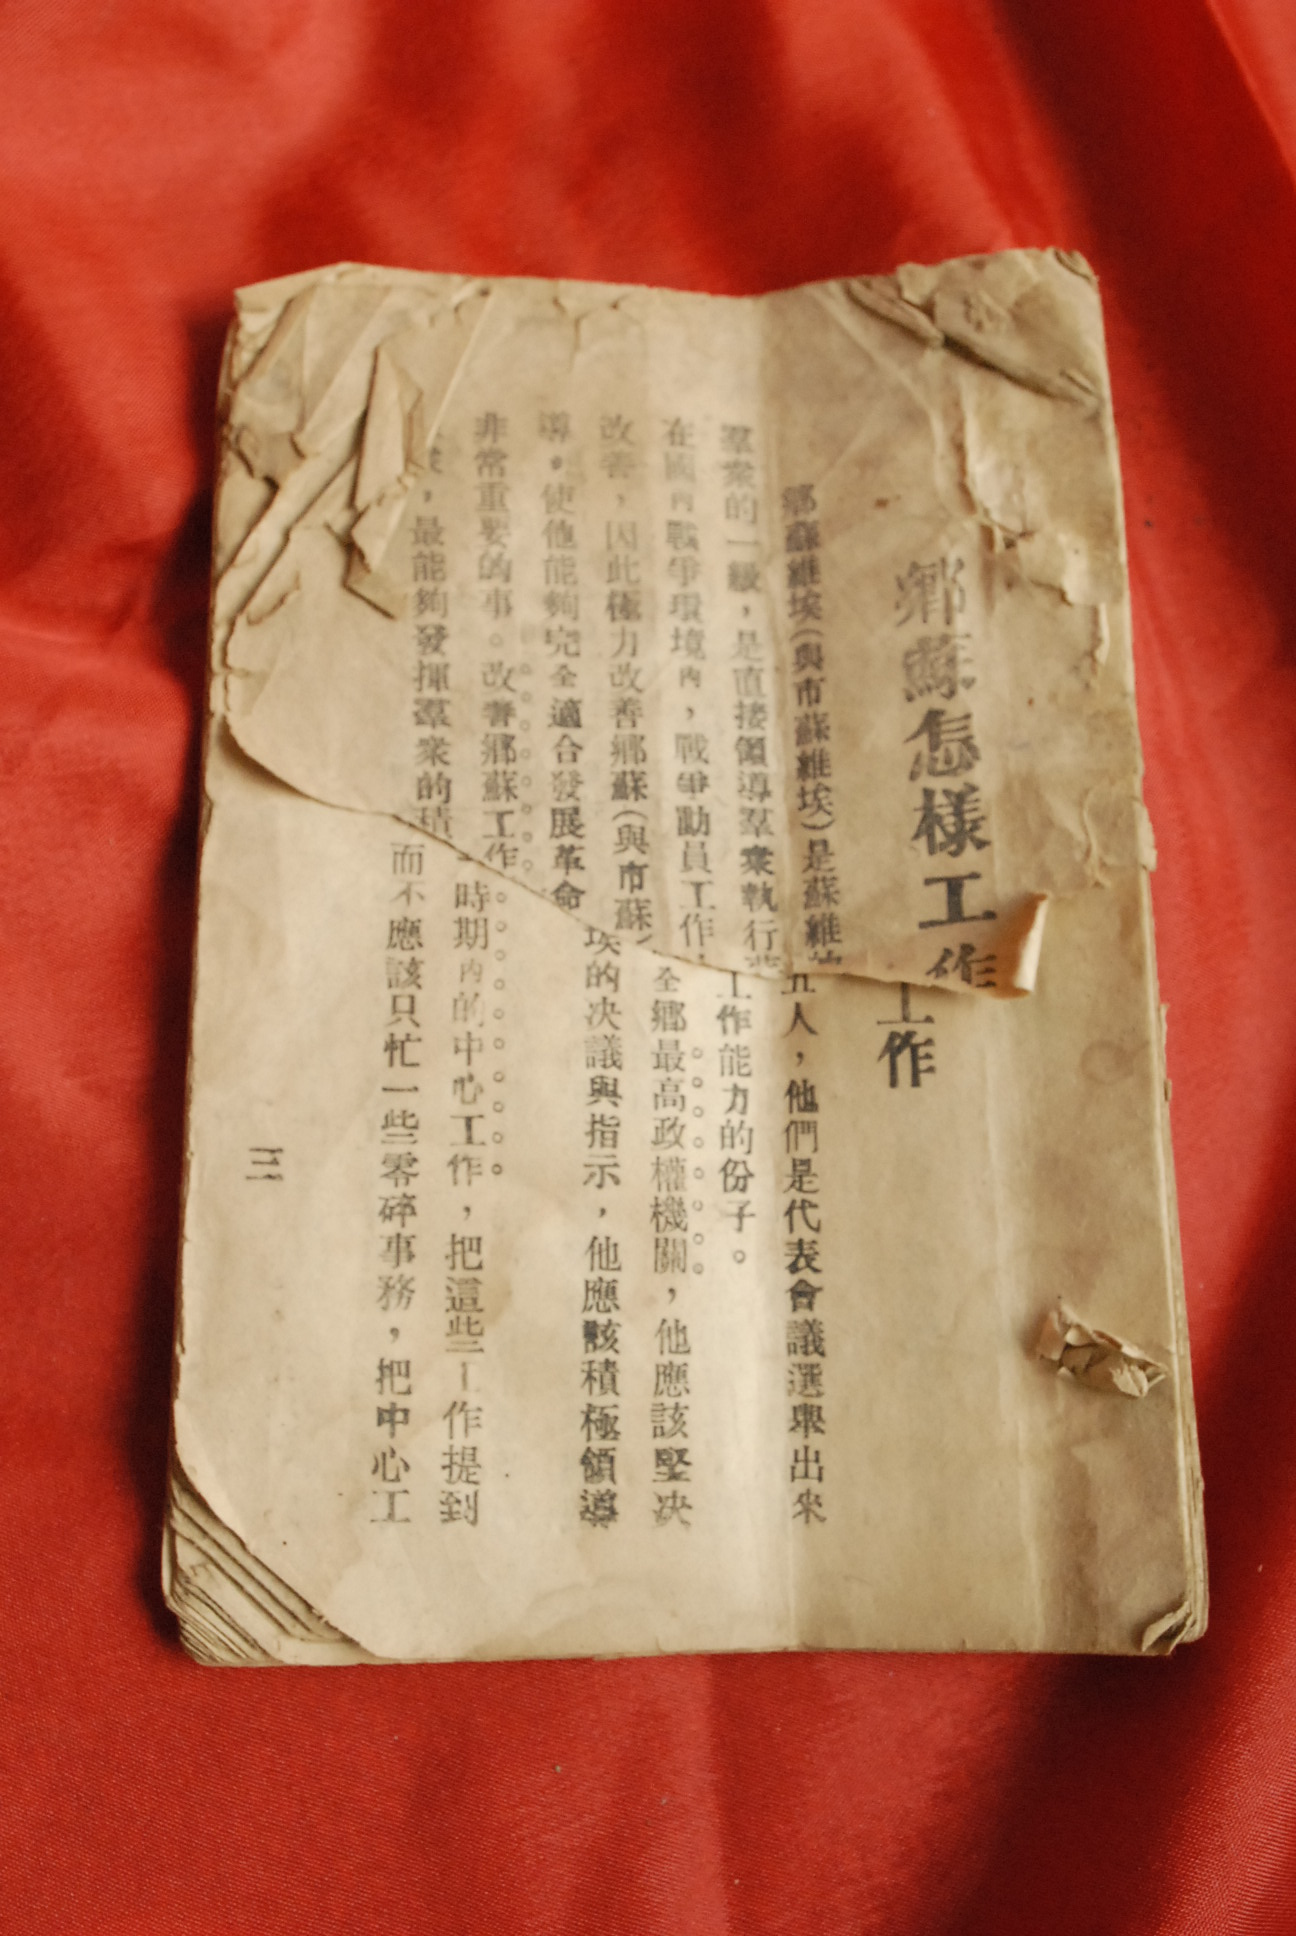 鄉蘇怎樣工作
鄉蘇維埃(與市蘇維埃)是蘇維
羣衆的一級，是直接領導羣衆執行
在國內戰爭環境內，戰爭動員工作，
改善，因此極力改善鄉蘇(與市蘇
導。使他能夠完全適合發展革命
非常重要的事。改善鄉蘇工作
，最能夠發揮羣衆的積
工作
五人，他們是代表會議選舉出來
工作能力的份子。
全鄉最高政權機關，他應該堅决
埃的决議與指示，他應該積極領導
時期內的中心工作，把這些工作提到
而不應該只忙一些零碎事務，把中心工
三